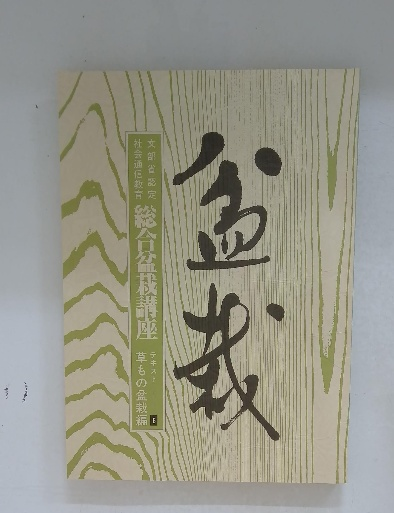 盆栽
文部省認定
社会通信教育
総合盆栽講座
テキスト
草もの盆栽編